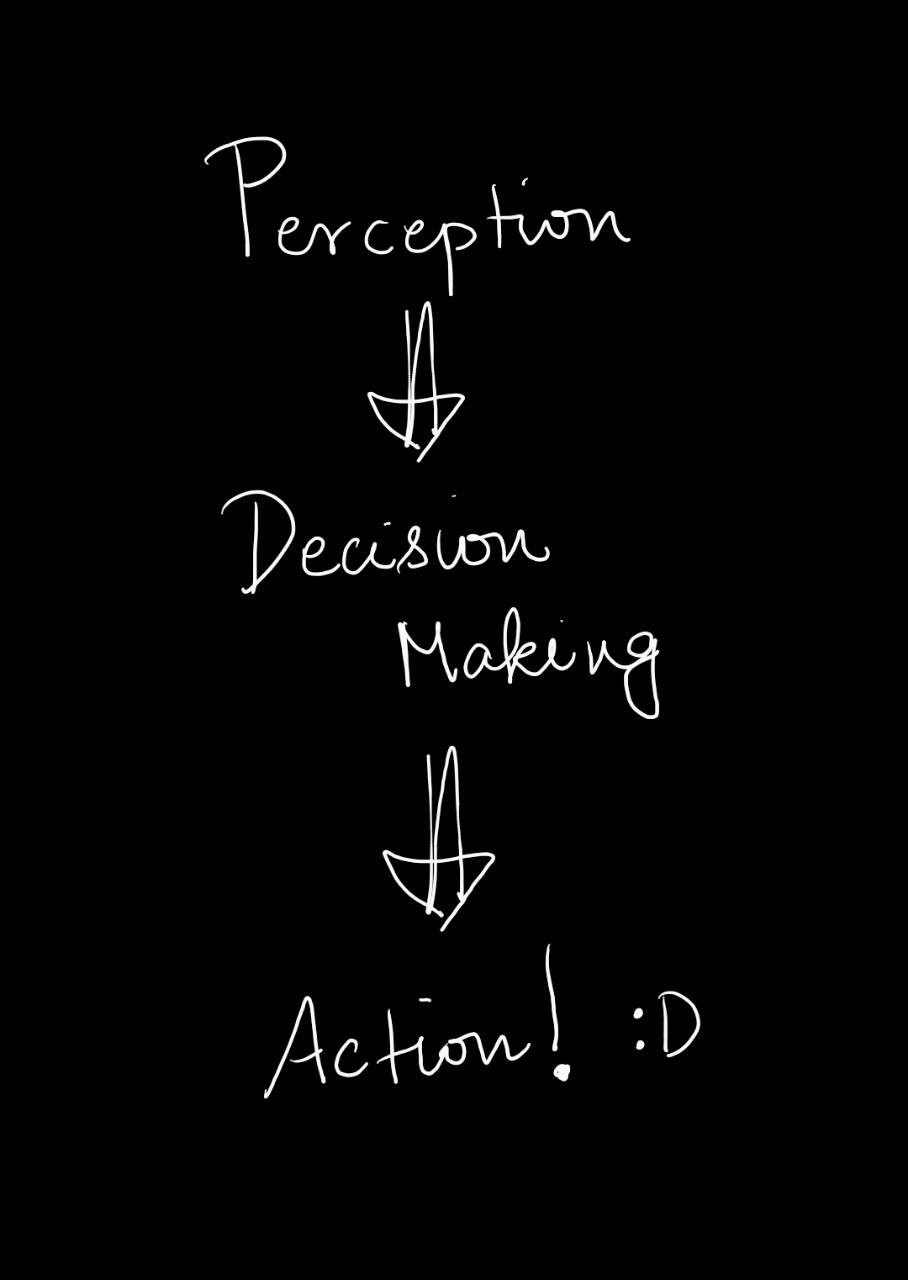 Perception
Decision
Making
Action! :D